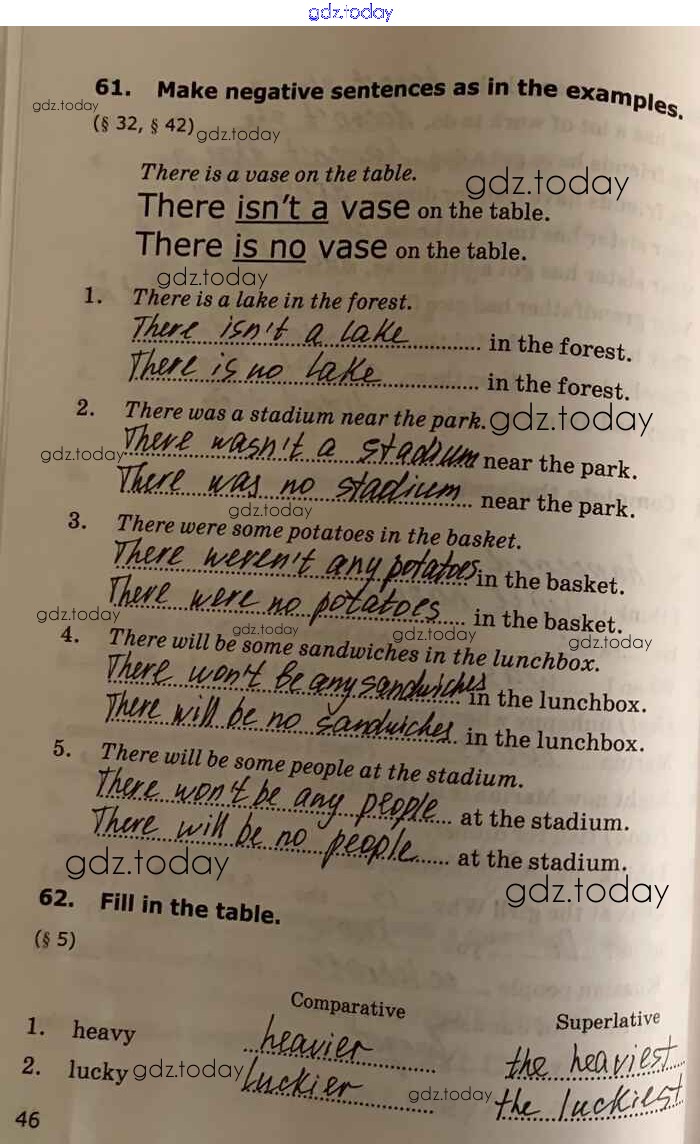 gdz.today
61. Make negative sentences as in the examples.
gdz.today
(§ 32, § 42) gdz.today
There is a vase on the table.
gdz.today
There isn't a vase on the table.
There is no vase on the table.
gdz.today
1. There is a lake in the forest.
There isn't a lake in the forest.
There is no lake in the forest.
2. There was a stadium near the park. gdz.today
There wasn't a stadium near the park.
gdz.today
There was no stadium near the park.
gdz.today
3. There were some potatoes in the basket.
There weren't any potatoes in the basket.
There were no potatoes in the basket.
gdz.today gdz.today gdz.today gdz.today
4. There will be some sandwiches in the lunchbox.
There won't be any sandwiches in the lunchbox.
There will be no sandwiches in the lunchbox.
5. There will be some people at the stadium.
There won't be any people at the stadium.
There will be no people at the stadium.
gdz.today
gdz.today
62. Fill in the table.
(§ 5)
Comparative Superlative
1. heavy heavier the heaviest
2. lucky gdz.today luckier the luckiest
gdz.today
46